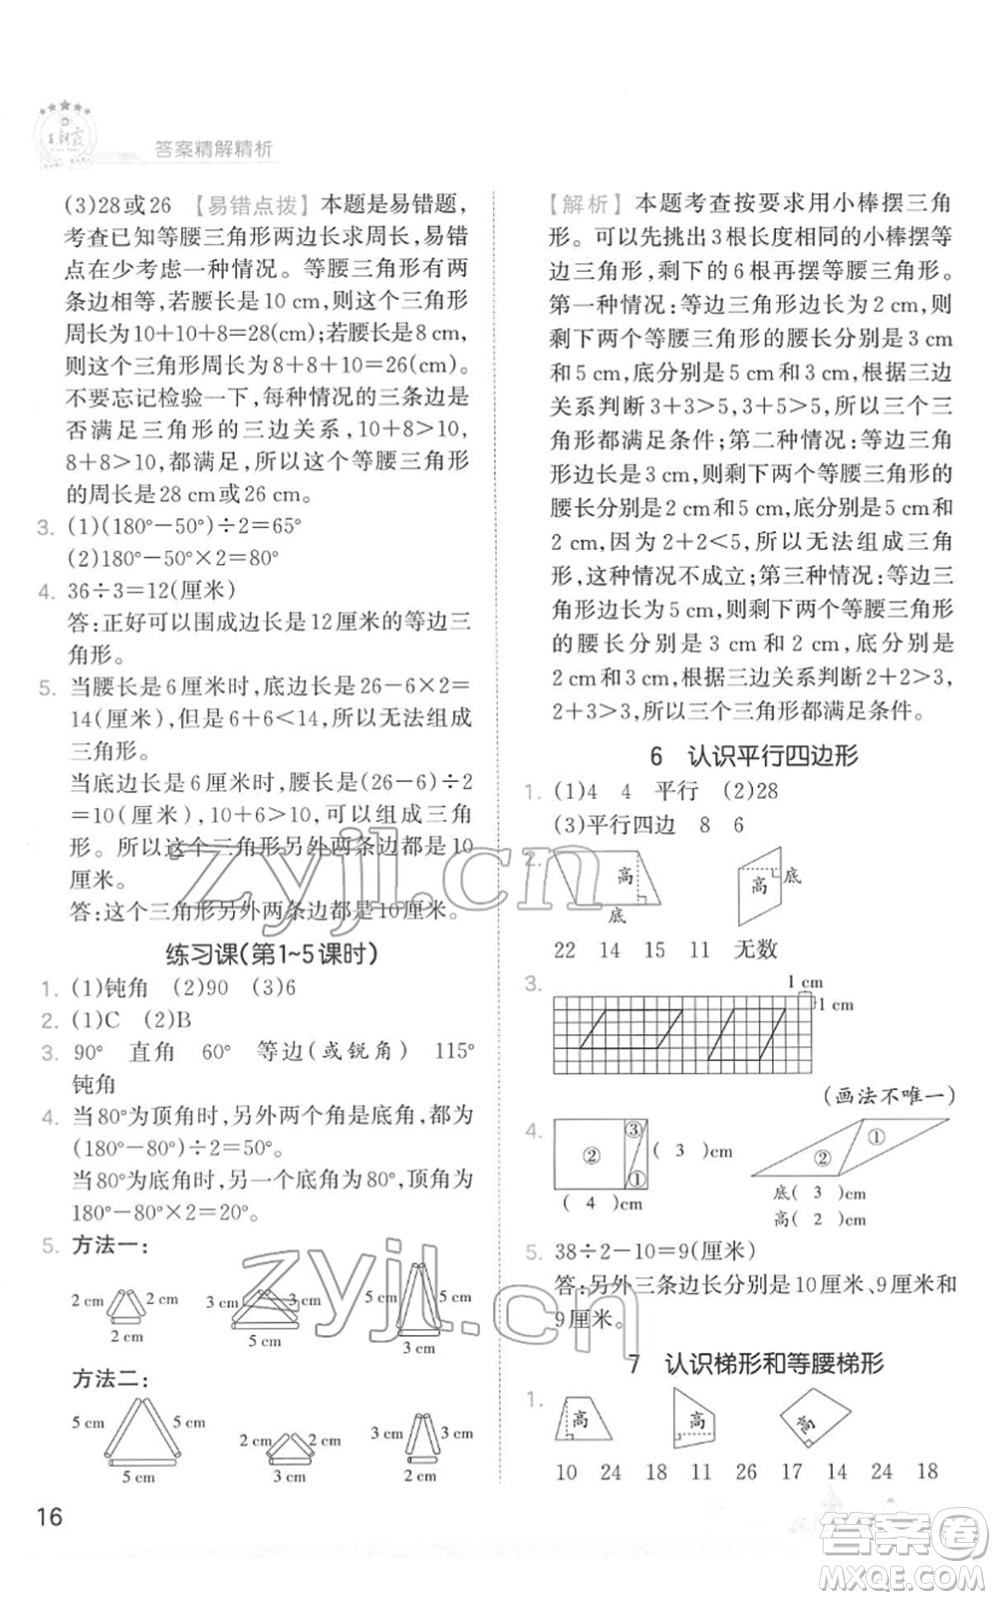 王朝霞
答案精解精析
(3)28或26 【易错点拨】本题是易错题，
考查已知等腰三角形两边长求周长，易错
点在少考虑一种情况。等腰三角形有两
条边相等，若腰长是10 cm，则这个三角形
周长为10+10+8=28(cm)；若腰长是8 cm，
则这个三角形周长为8+8+10=26(cm)。
不要忘记检验一下，每种情况的三条边是
否满足三角形的三边关系，10+8>10，
8+8>10，都满足，所以这个等腰三角形
的周长是28 cm或26 cm。
3. (1)(180°-50°)÷2=65°
(2)180°-50°×2=80°
4. 36÷3=12(厘米)
答：正好可以围成边长是12厘米的等边三
角形。
5. 当腰长是6厘米时，底边长是26-6×2=
14(厘米)，但是6+6<14，所以无法组成
三角形。
当底边长是6厘米时，腰长是(26-6)÷2
=10(厘米)，10+6>10，可以组成三角
形。所以这个三角形另外两条边都是10
厘米。
答：这个三角形另外两条边都是10厘米。
练习课(第1~5课时)
1. (1)钝角 (2)90 (3)6
2. (1)C (2)B
3. 90° 直角 60° 等边(或锐角) 115°
钝角
4. 当80°为顶角时，另外两个角是底角，都为
(180°-80°)÷2=50°。
当80°为底角时，另一个底角为80°，顶角为
180°-80°×2=20°。
5. 方法一：
2 cm 2 cm 3 cm 3 cm 5 cm 5 cm
2 cm 5 cm 3 cm
方法二：
5 cm 5 cm 2 cm 2 cm 3 cm 3 cm
5 cm 3 cm 2 cm
16
【解析】本题考查按要求用小棒摆三角
形。可以先挑出3根长度相同的小棒摆等
边三角形，剩下的6根再摆等腰三角形。
第一种情况：等边三角形边长为2 cm，则
剩下两个等腰三角形的腰长分别是3 cm
和5 cm，底分别是5 cm和3 cm，根据三边
关系判断3+3>5，3+5>5，所以三个三
角形都满足条件；第二种情况：等边三角
形边长是3 cm，则剩下两个等腰三角形的
腰长分别是2 cm和5 cm，底分别是5 cm和
2 cm，因为2+2<5，所以无法组成三角
形，这种情况不成立；第三种情况：等边三
角形边长是5 cm，则剩下两个等腰三角形
的腰长分别是3 cm和2 cm，底分别是
2 cm和3 cm，根据三边关系判断2+2>3，
2+3>3，所以三个三角形都满足条件。
6 认识平行四边形
1. (1)4 4 平行 (2)28
(3)平行四边 8 6
2. 高 底 高 底
22 14 15 11 无数
3. 1 cm
1 cm
(画法不唯一)
4. ② ③ ① (3)cm
(4)cm
① ②
底(3)cm
高(2)cm
5. 38÷2-10=9(厘米)
答：另外三条边长分别是10厘米、9厘米和
9厘米。
7 认识梯形和等腰梯形
1. 高 高 高
10 24 18 14 24 18
zyjl.cn
zyjl.cn
答案圈
MXQE.COM